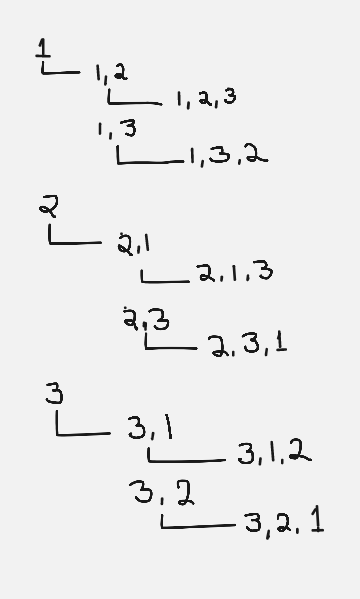 1
1,2
1,2,3
1,3
1,3,2
2
2,1
2,1,3
2,3
2,3,1
3
3,1
3,1,2
3,2
3,2,1